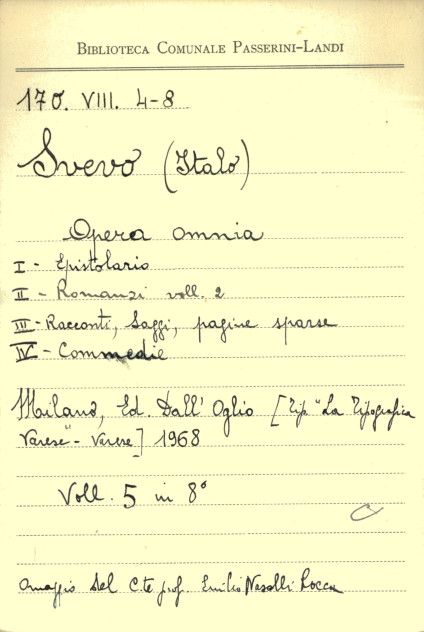 BIBLIOTECA COMUNALE PASSERINI-LANDI
170. VIII. 4-8
Svevo (Italo)
Opera omnia
I - Epistolario
II - Romanzi voll. 2
III - Racconti, Saggi, pagine sparse
IV - Commedie
Milano, Ed. Dall'Oglio [Tip. "La Tipografica
Varese" - Varese] 1968
Voll. 5 in 8°
Omaggio del C.te prof. Emilio Nasalli Rocca